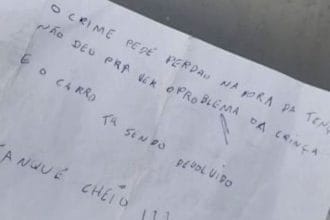 O CRIME PEDE PERDAO NA HORA DA TEN
NÃO DEU PRA VER O PROBLEMA DA CRINÇA
E O CARRO
TA SENDO DEVOLVIDO
TANQUE CHEIO !!!